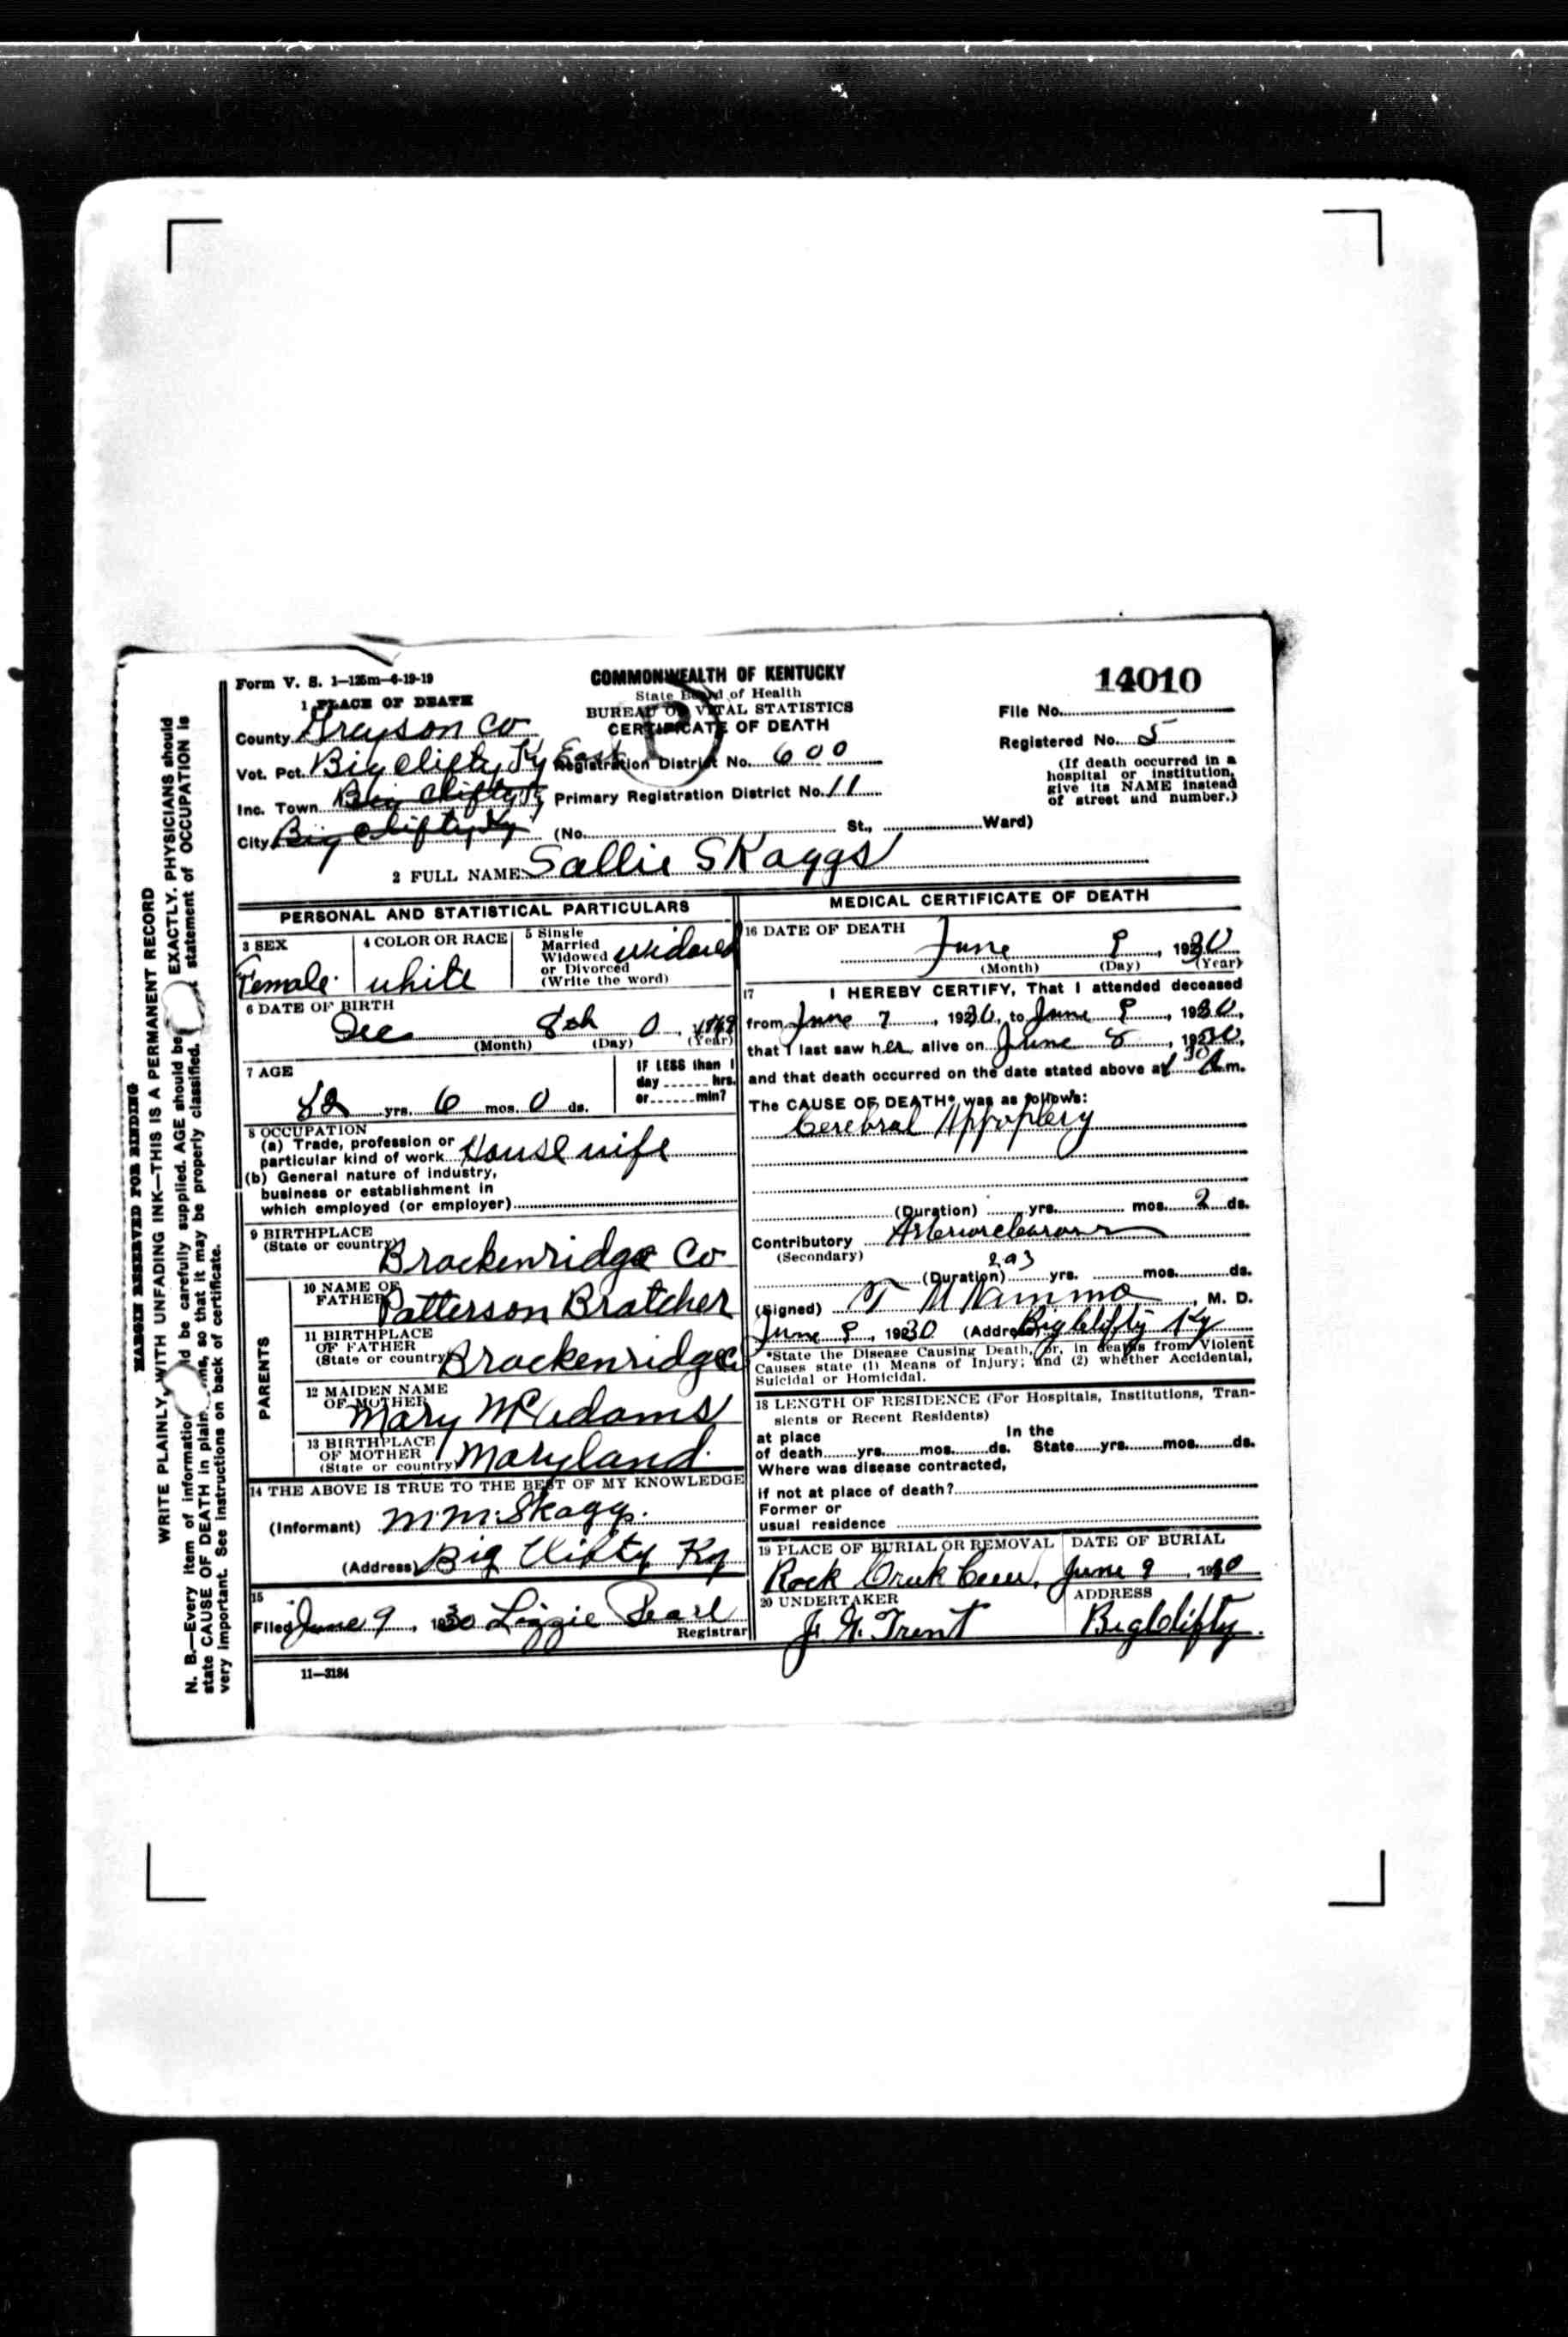 MARGIN RESERVED FOR BINDING
WRITE PLAINLY, WITH UNFADING INK—THIS IS A PERMANENT RECORD
N. B.—Every item of information should be carefully supplied. AGE should be EXACTLY. PHYSICIANS should
state CAUSE OF DEATH in plain so that it may be properly classified. statement of OCCUPATION is
very important. See instructions on back of certificate.
Form V. S. 1—125m—6-19-19
COMMONWEALTH OF KENTUCKY
State Board of Health
BUREAU OF VITAL STATISTICS
CERTIFICATE OF DEATH
14010
File No.
Registered No. 5
(If death occurred in a
hospital or institution,
give its NAME instead
of street and number.)
1 PLACE OF DEATH
County Grayson Co
Vot. Pct. Big Clifty Ky East Registration District No. 600
Inc. Town Big Clifty Ky Primary Registration District No. 11
City Big Clifty Ky (No. St., Ward)
2 FULL NAME Sallie Skaggs
PERSONAL AND STATISTICAL PARTICULARS
3 SEX
Female
4 COLOR OR RACE
white
5 Single
Married
Widowed
or Divorced
(Write the word)
widowed
6 DATE OF BIRTH
Dec 8th 0
(Month) (Day) (Year)
7 AGE
82 yrs. 6 mos. 0 ds.
IF LESS than 1
day hrs.
or min?
8 OCCUPATION
(a) Trade, profession or
particular kind of work House wife
(b) General nature of industry,
business or establishment in
which employed (or employer)
9 BIRTHPLACE
(State or country)
Brackenridge Co
PARENTS
10 NAME OF
FATHER Patterson Bratcher
11 BIRTHPLACE
OF FATHER
(State or country) Brackenridge Co
12 MAIDEN NAME
OF MOTHER
Mary McAdams
13 BIRTHPLACE
OF MOTHER
(State or country) Maryland
14 THE ABOVE IS TRUE TO THE BEST OF MY KNOWLEDGE
(Informant) M.M. Skaggs.
(Address) Big Clifty Ky
15
Filed June 9, 1930 Lizzie Pearl
Registrar
11—3184
MEDICAL CERTIFICATE OF DEATH
16 DATE OF DEATH
June 8, 1930
(Month) (Day) (Year)
17 I HEREBY CERTIFY, That I attended deceased
from June 7, 1930, to June 8, 1930,
that I last saw her alive on June 8, 1930,
and that death occurred on the date stated above at 30 A.m.
The CAUSE OF DEATH* was as follows:
Cerebral Appoplexy
(Duration) yrs. mos. 2 ds.
Contributory
(Secondary)
(Duration) 2 or 3 yrs. mos. ds.
(Signed) T M Nimmo, M. D.
June 8, 1930 (Address) Big Clifty Ky
*State the Disease Causing Death, or, in deaths from Violent
Causes state (1) Means of Injury; and (2) whether Accidental,
Suicidal or Homicidal.
18 LENGTH OF RESIDENCE (For Hospitals, Institutions, Tran-
sients or Recent Residents)
at place In the
of death yrs. mos. ds. State yrs. mos. ds.
Where was disease contracted,
if not at place of death?
Former or
usual residence
19 PLACE OF BURIAL OR REMOVAL
Rock Creek Cem.
DATE OF BURIAL
June 9, 1930
20 UNDERTAKER
J. G. Trent
ADDRESS
Big Clifty.